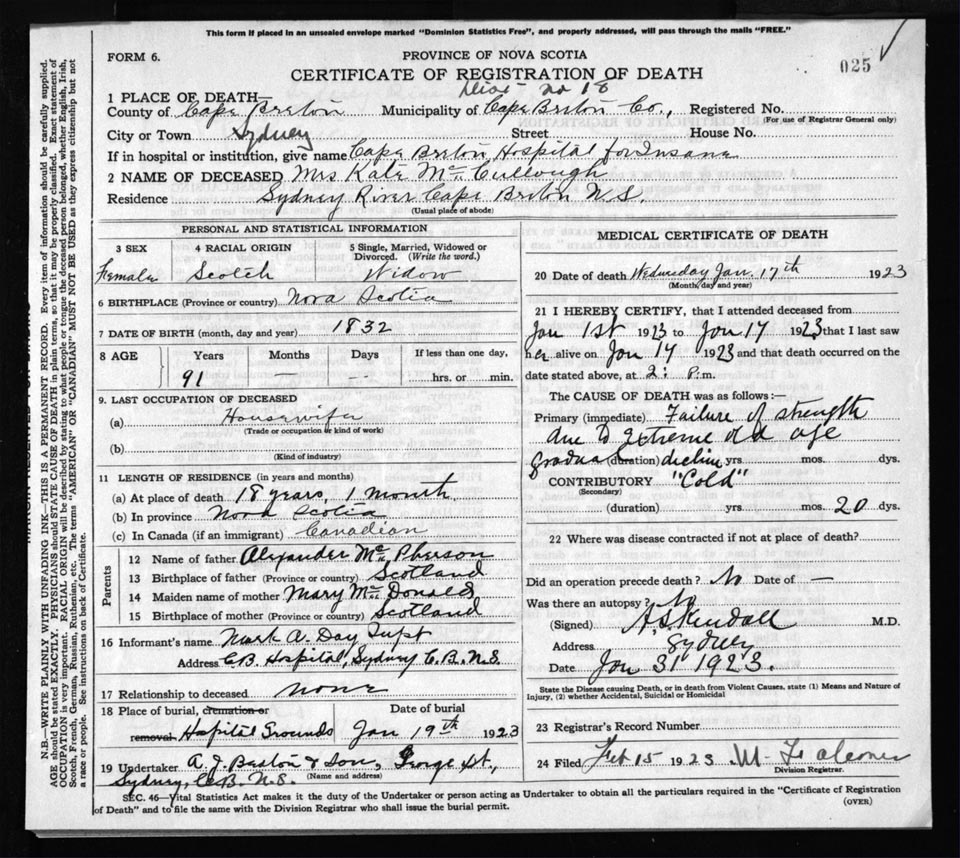 This form if placed in an unsealed envelope marked "Dominion Statistics Free", and properly addressed, will pass through the mails "FREE."
FORM 6.
PROVINCE OF NOVA SCOTIA
025
CERTIFICATE OF REGISTRATION OF DEATH
Dist no 18
1 PLACE OF DEATH—
County of Cape Breton Municipality of Cape Breton Co., Registered No.
(For use of Registrar General only)
City or Town Sydney Street House No.
If in hospital or institution, give name Cape Breton Hospital for Insane
2 NAME OF DECEASED Mrs Kate McCullough
Residence Sydney River Cape Breton N.S.
(Usual place of abode)
PERSONAL AND STATISTICAL INFORMATION
3 SEX 4 RACIAL ORIGIN 5 Single, Married, Widowed or Divorced. (Write the word.)
Female Scotch Widow
6 BIRTHPLACE (Province or country) Nova Scotia
7 DATE OF BIRTH (month, day and year) 1832
8 AGE Years Months Days If less than one day,
91 — — hrs. or min.
9. LAST OCCUPATION OF DECEASED
(a) Housewife
(Trade or occupation or kind of work)
(b)
(Kind of industry)
11 LENGTH OF RESIDENCE (in years and months)
(a) At place of death 18 years, 1 month
(b) In province Nova Scotia
(c) In Canada (if an immigrant) Canadian
Parents
12 Name of father Alexander McPherson
13 Birthplace of father (Province or country) Scotland
14 Maiden name of mother Mary McDonald
15 Birthplace of mother (Province or country) Scotland
16 Informant's name Mark A. Day Supt
Address C.B. Hospital, Sydney C.B. N.S.
17 Relationship to deceased none
18 Place of burial, cremation or Date of burial
removal Hospital Grounds Jan 19th 1923
19 Undertaker A. J. Beaton & Son, George St,
(Name and address)
Sydney, C.B. N.S.
MEDICAL CERTIFICATE OF DEATH
20 Date of death Wednesday Jan. 17th 1923
(Month, day and year)
21 I HEREBY CERTIFY, that I attended deceased from
Jan 1st 1923 to Jan 17 1923 that I last saw
her alive on Jan 14 1923 and that death occurred on the
date stated above, at 2: P.m.
The CAUSE OF DEATH was as follows:—
Primary (immediate) Failure of strength
due to extreme old age
gradual (duration) decline yrs. mos. dys.
CONTRIBUTORY "Cold"
(Secondary)
(duration) yrs. mos. 20 dys.
22 Where was disease contracted if not at place of death?
Did an operation precede death? No Date of —
Was there an autopsy? No
(Signed) A S Kendall M.D.
Address Sydney
Date Jan 31 1923.
State the Disease causing Death, or in death from Violent Causes, state (1) Means and Nature of
Injury, (2) whether Accidental, Suicidal or Homicidal
23 Registrar's Record Number
24 Filed Feb 15 1923
Division Registrar.
SEC. 46—Vital Statistics Act makes it the duty of the Undertaker or person acting as Undertaker to obtain all the particulars required in the "Certificate of Registration
of Death" and to file the same with the Division Registrar who shall issue the burial permit. (OVER)
N.B.—WRITE PLAINLY WITH UNFADING INK—THIS IS A PERMANENT RECORD. Every item of information should be carefully supplied.
AGE should be stated EXACTLY. PHYSICIANS should STATE CAUSE OF DEATH in plain terms, so that it may be properly classified. Exact statement of
OCCUPATION is very important. RACIAL ORIGIN will be described by stating to what people or tongue the deceased person belonged, whether English, Irish,
Scotch, French, German, Russian, Ruthenian, etc. The terms "AMERICAN" OR "CANADIAN" MUST NOT BE USED as they express citizenship but not
a race or people. See instructions on back of Certificate.